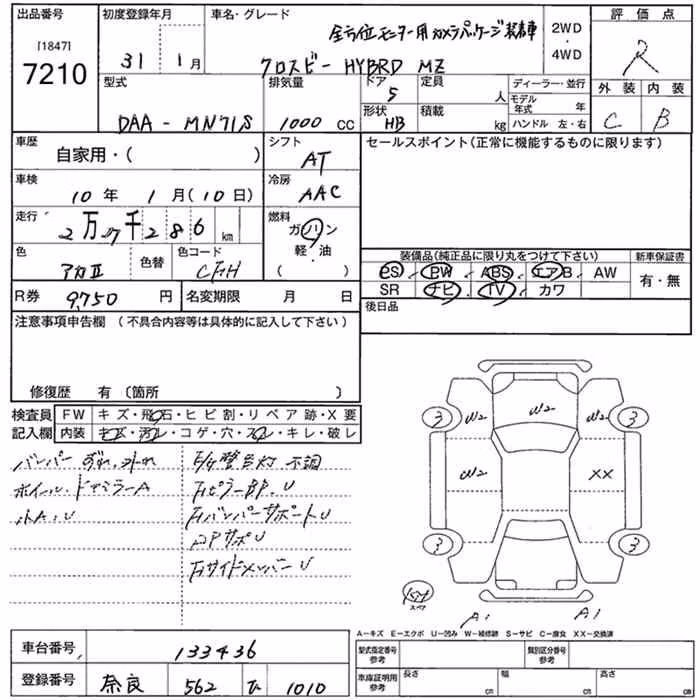 出品番号
[1847]
7210
初度登録年月
31 1月
車名・グレード
全方位モニター用カメラパッケージ装着車
クロスビー HYBRD MZ
2WD
・
4WD
評価点
R
外装 内装
C B
型式
DAA-MN71S
排気量
1000 CC
ドア
5
形状
HB
定員
人
積載
kg
ディーラー・並行
モデル年式 年
ハンドル 左・右
車歴
自家用・( )
シフト
AT
セールスポイント(正常に機能するものに限ります)
車検
10年 1月(10日)
冷房
AAC
走行
2万7千286 km
燃料
ガソリン
軽・油
( )
色
アカII
色替
色コード
CFH
装備品(純品に限り丸をつけて下さい)
PS・PW・ABS・エアB・AW
SR ナビ・TV・カワ
新車保証書
有・無
R券 9,750 円
名変期限 月 日
後日品
注意事項申告欄 (不具合内容等は具体的に記入して下さい)
修復歴 有 〔箇所 〕
検査員記入欄
FW キズ・飛石・ヒビ割・リペア跡・X要
内装 キズ・汚レ・コゲ・穴・スレ・キレ・破レ
バンパー ずれ、外れ
ホイール、ドアミラーA
小A、U
F/G警告灯 不調
FピラーBP、U
FバンパーサポートU
コアサポU
FサイドメンバーU
W2 W2 W2
W2 XX
3 3
3 3
スペア
A1 A1
A-キズ E-エクボ U-凹み W-補修跡 S-サビ C-腐食 XX-交換済
車台番号 133436
登録番号 奈良 562 ひ 1010
型式指定番号 参考
類別区分番号 参考
車庫証明用 参考
長さ cm 幅 cm 高さ cm